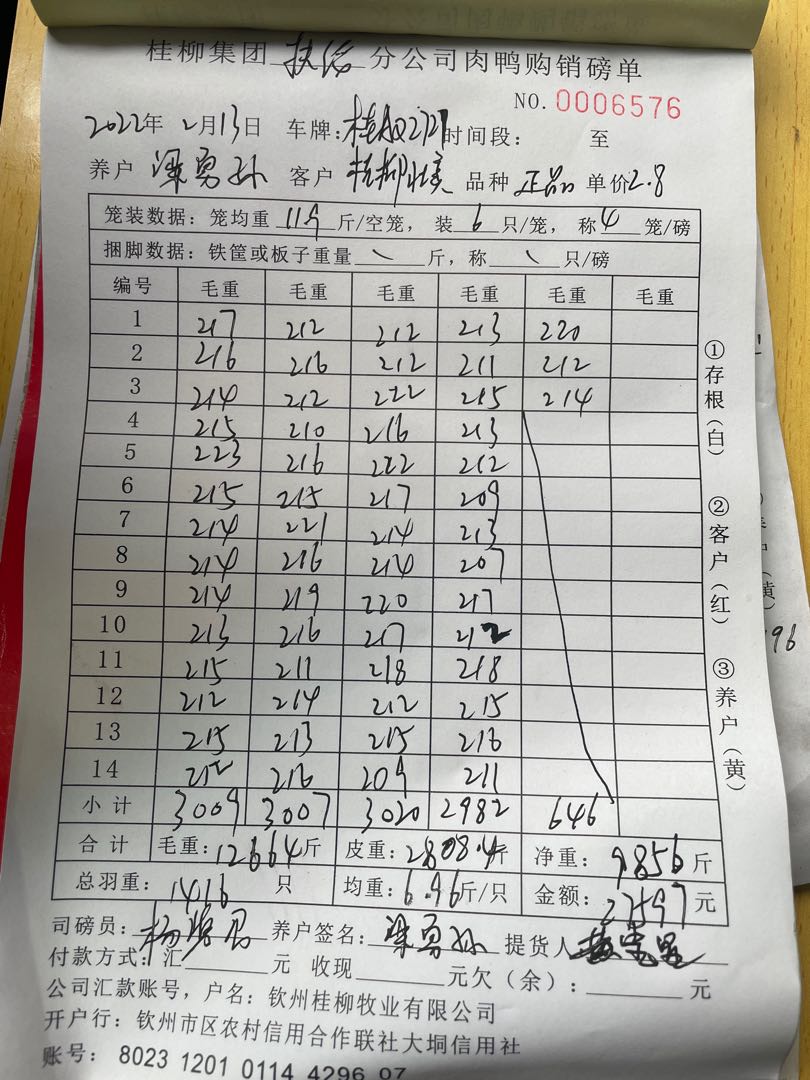 桂柳集团 扶绥 分公司肉鸭购销磅单
NO. 0006576
2022年 2月13日 车牌: 2727 时间段: 至
养户 梁勇孙 客户 桂柳 品种 正品 单价2.8
笼装数据: 笼均重 119 斤/空笼, 装 6 只/笼, 称 4 笼/磅
捆脚数据: 铁筐或板子重量 \ 斤, 称 \ 只/磅
编号 毛重 毛重 毛重 毛重 毛重 毛重
1 217 212 212 213 220
2 216 216 212 211 212
3 214 212 222 215 214
4 215 210 216 213
5 223 216 222 212
6 215 215 217 209
7 214 221 214 213
8 214 216 214 207
9 214 219 220 217
10 213 216 217 212
11 215 211 218 218
12 212 214 212 215
13 215 213 215 216
14 212 216 209 211
小计 3009 3007 3020 2982 646
合计 毛重: 12664斤 皮重: 2808.4斤 净重: 9856斤
总羽重: 1416 只 均重: 6.96斤/只 金额: 27597元
司磅员: 杨 养户签名: 梁勇孙 提货人
付款方式: 汇 元 收现 元欠(余): 元
公司汇款账号, 户名: 钦州桂柳牧业有限公司
开户行: 钦州市区农村信用合作联社大垌信用社
账号: 8023 1201 0114 4296 07
①存根(白)
②客户(红)
③养户(黄)